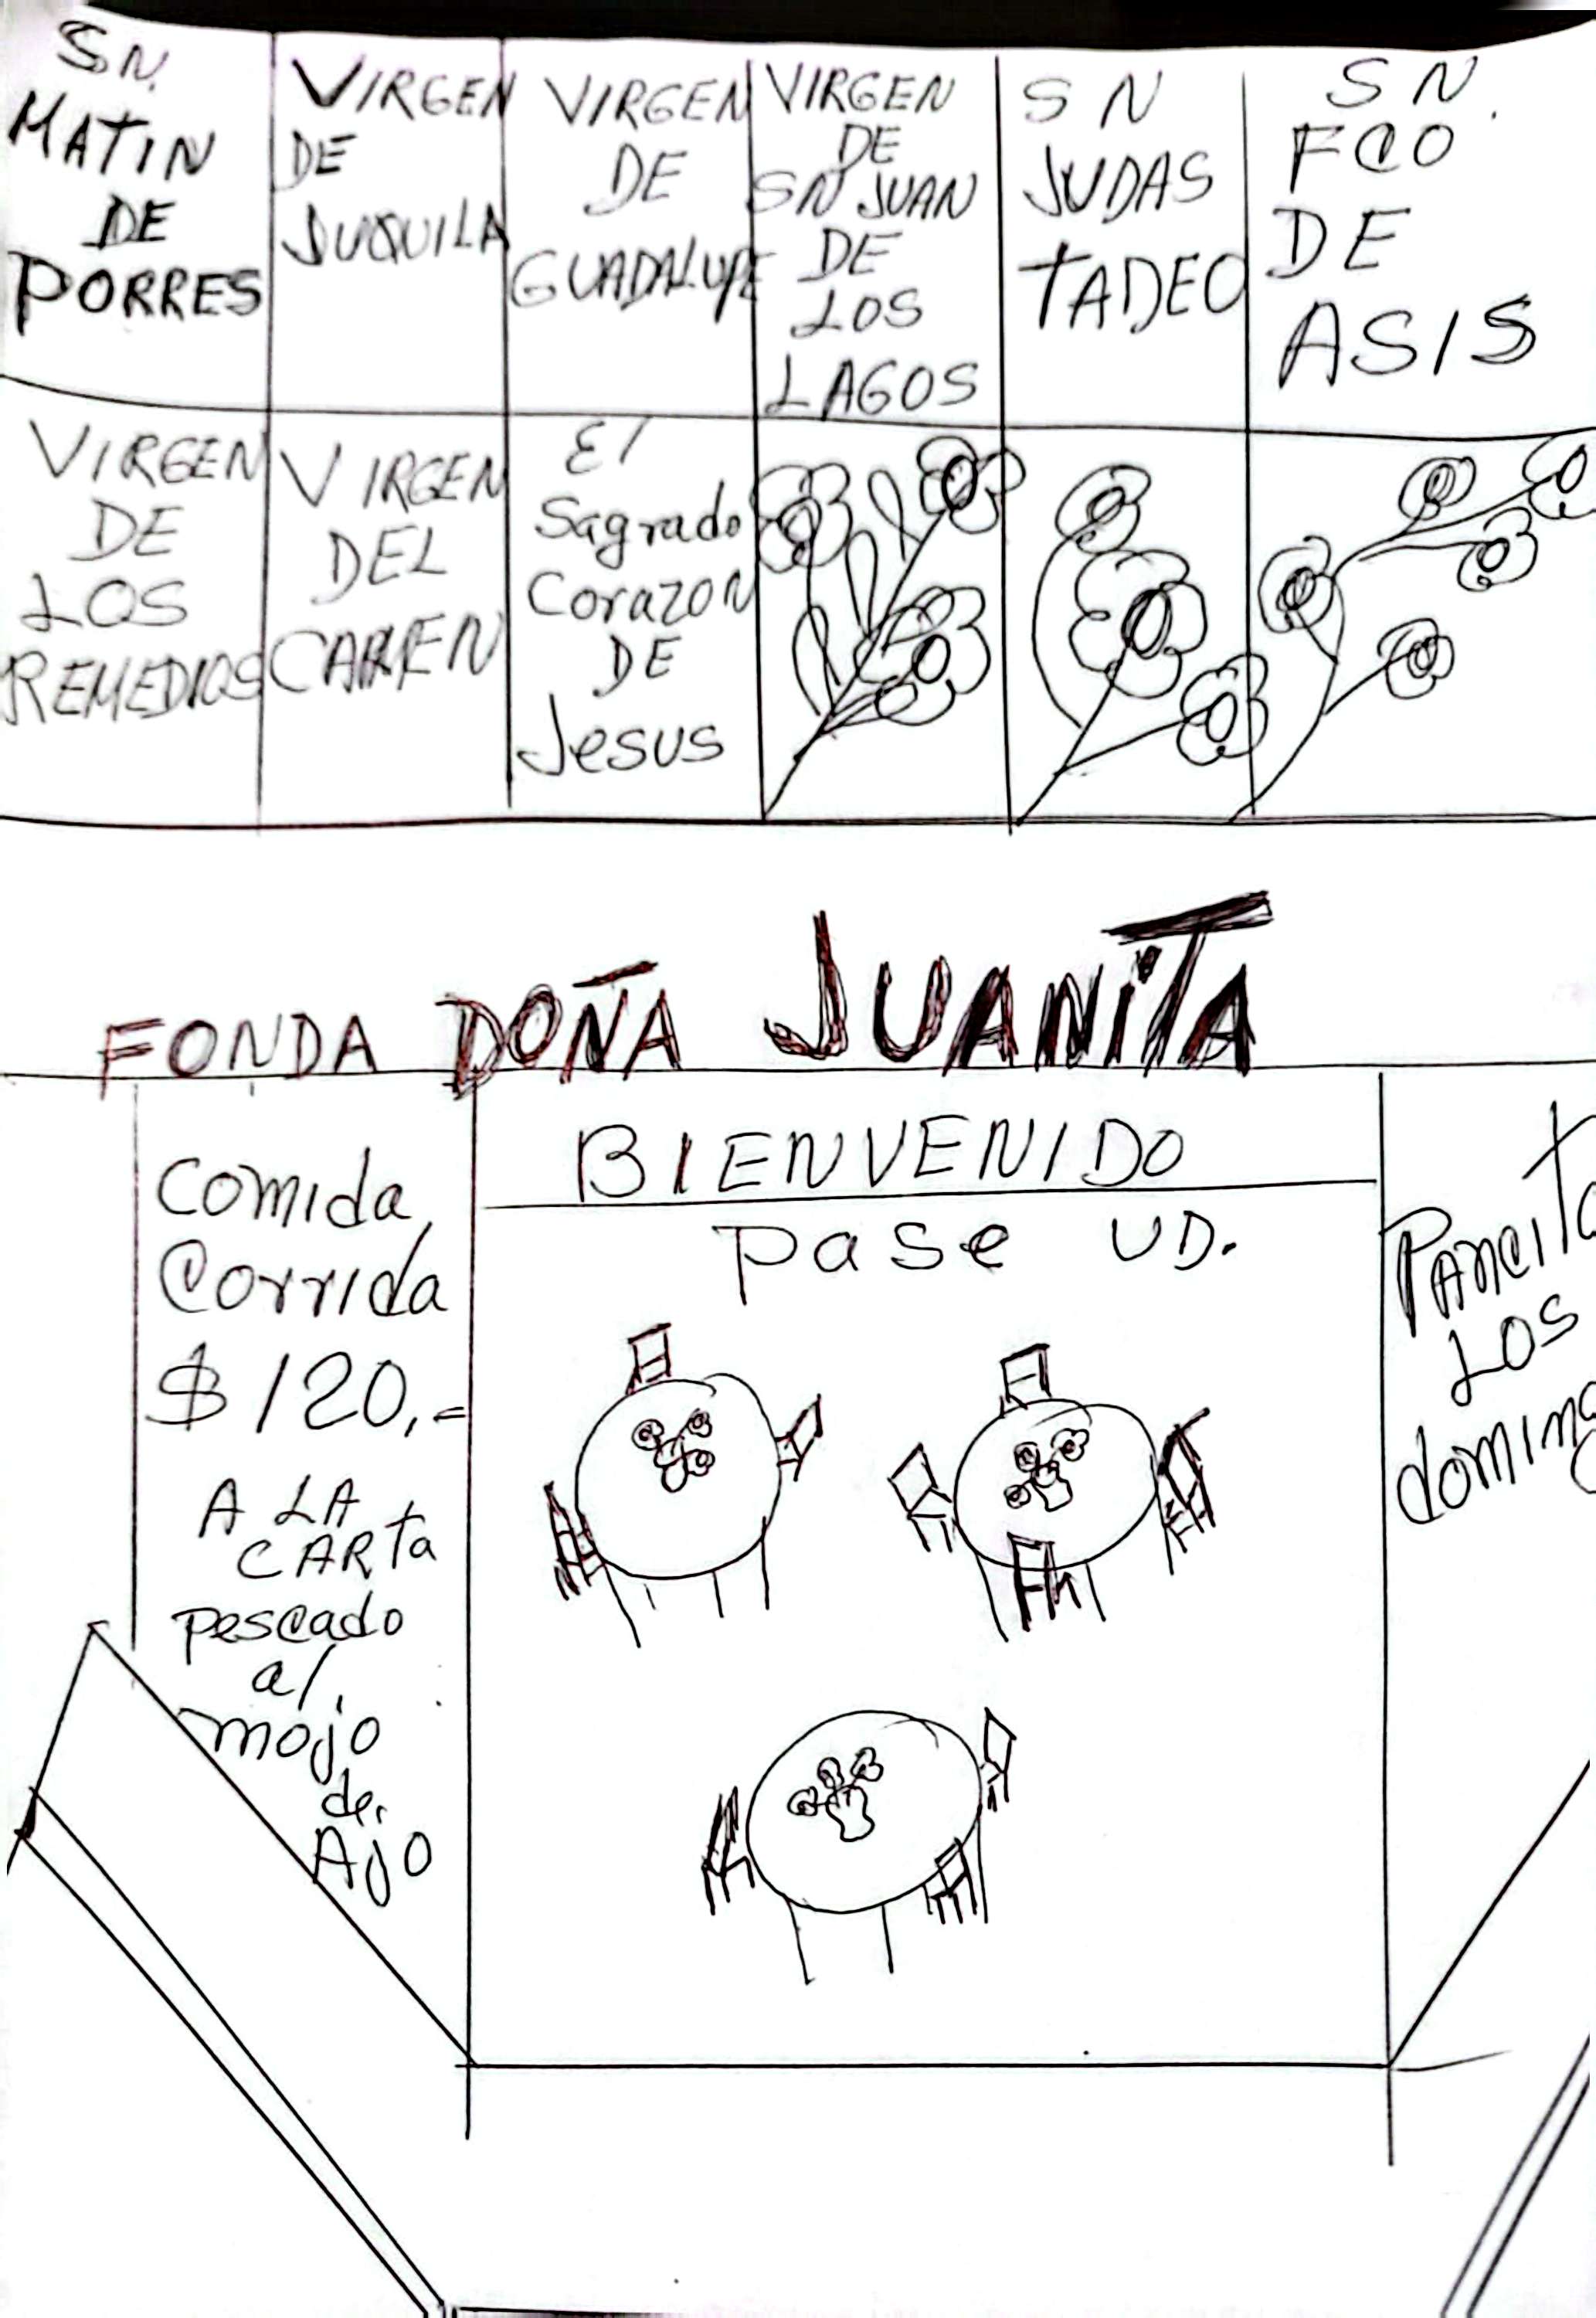 SN.
MATIN
DE
PORRES
VIRGEN
DE
JUQUILA
VIRGEN
DE
GUADALUPE
VIRGEN
DE
SN JUAN
DE
LOS
LAGOS
SN
JUDAS
TADEO
SN.
FCO
DE
ASIS
VIRGEN
DE
LOS
REMEDIOS
VIRGEN
DEL
CARMEN
El
Sagrado
Corazon
DE
Jesus
FONDA DOÑA JUANITA
Comida
Corrida
$120,=
A LA
CARTa
Pescado
al
mojo
de
Ajo
BIENVENIDO
Pase UD.
Pancita
LOS